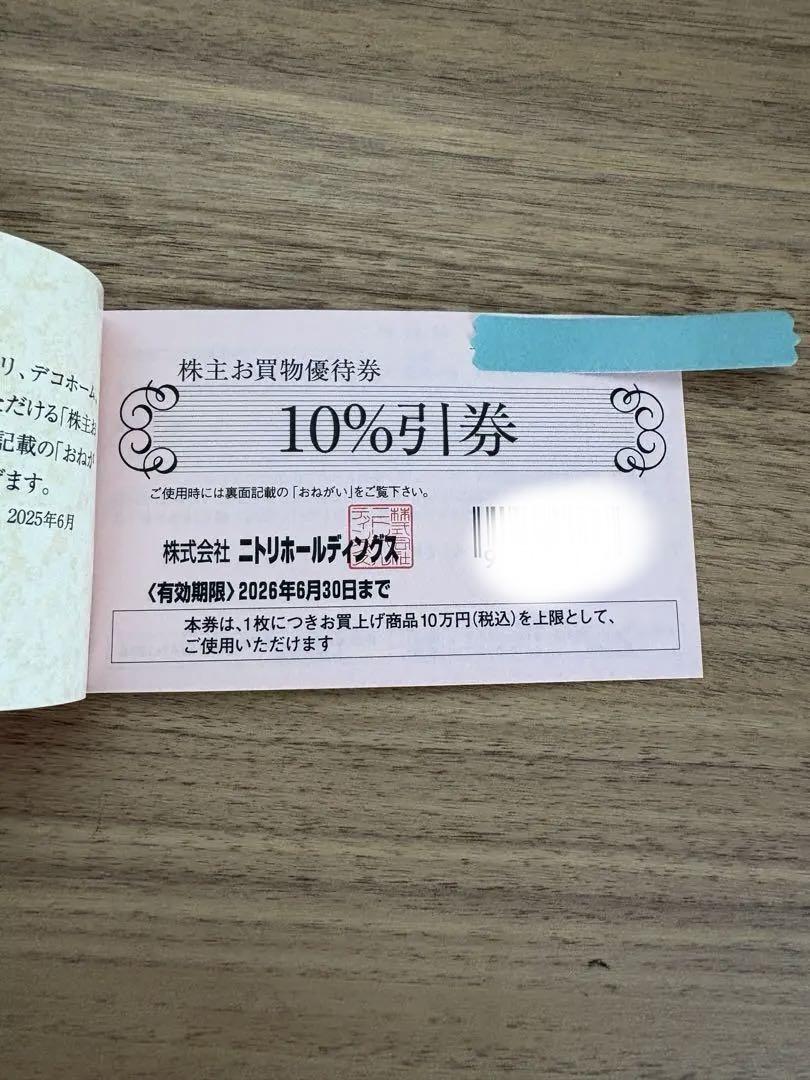 リ、デコホーム、
ただける「株主お
記載の「おねが
げます。
2025年6月
株主お買物優待券
10%引券
ご使用時には裏面記載の「おねがい」をご覧下さい。
株式会社 ニトリホールディングス
〈有効期限〉2026年6月30日まで
9
本券は、1枚につきお買上げ商品10万円(税込)を上限として、
ご使用いただけます